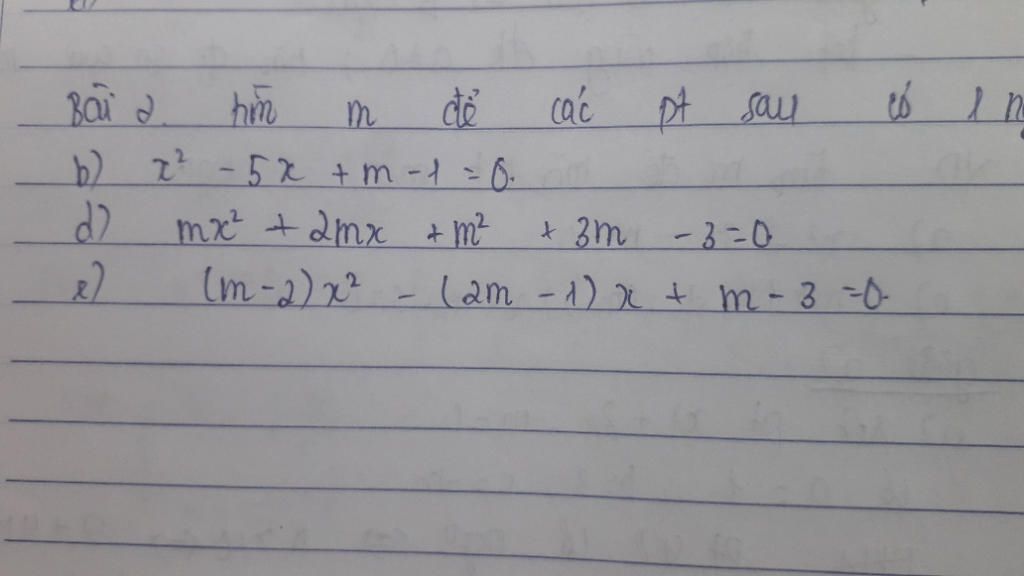 Bài 2. tìm m để các pt sau có 1
b) x² - 5x + m - 1 = 0.
d) mx² + 2mx + m² + 3m - 3 = 0
e) (m - 2)x² - (2m - 1)x + m - 3 = 0.